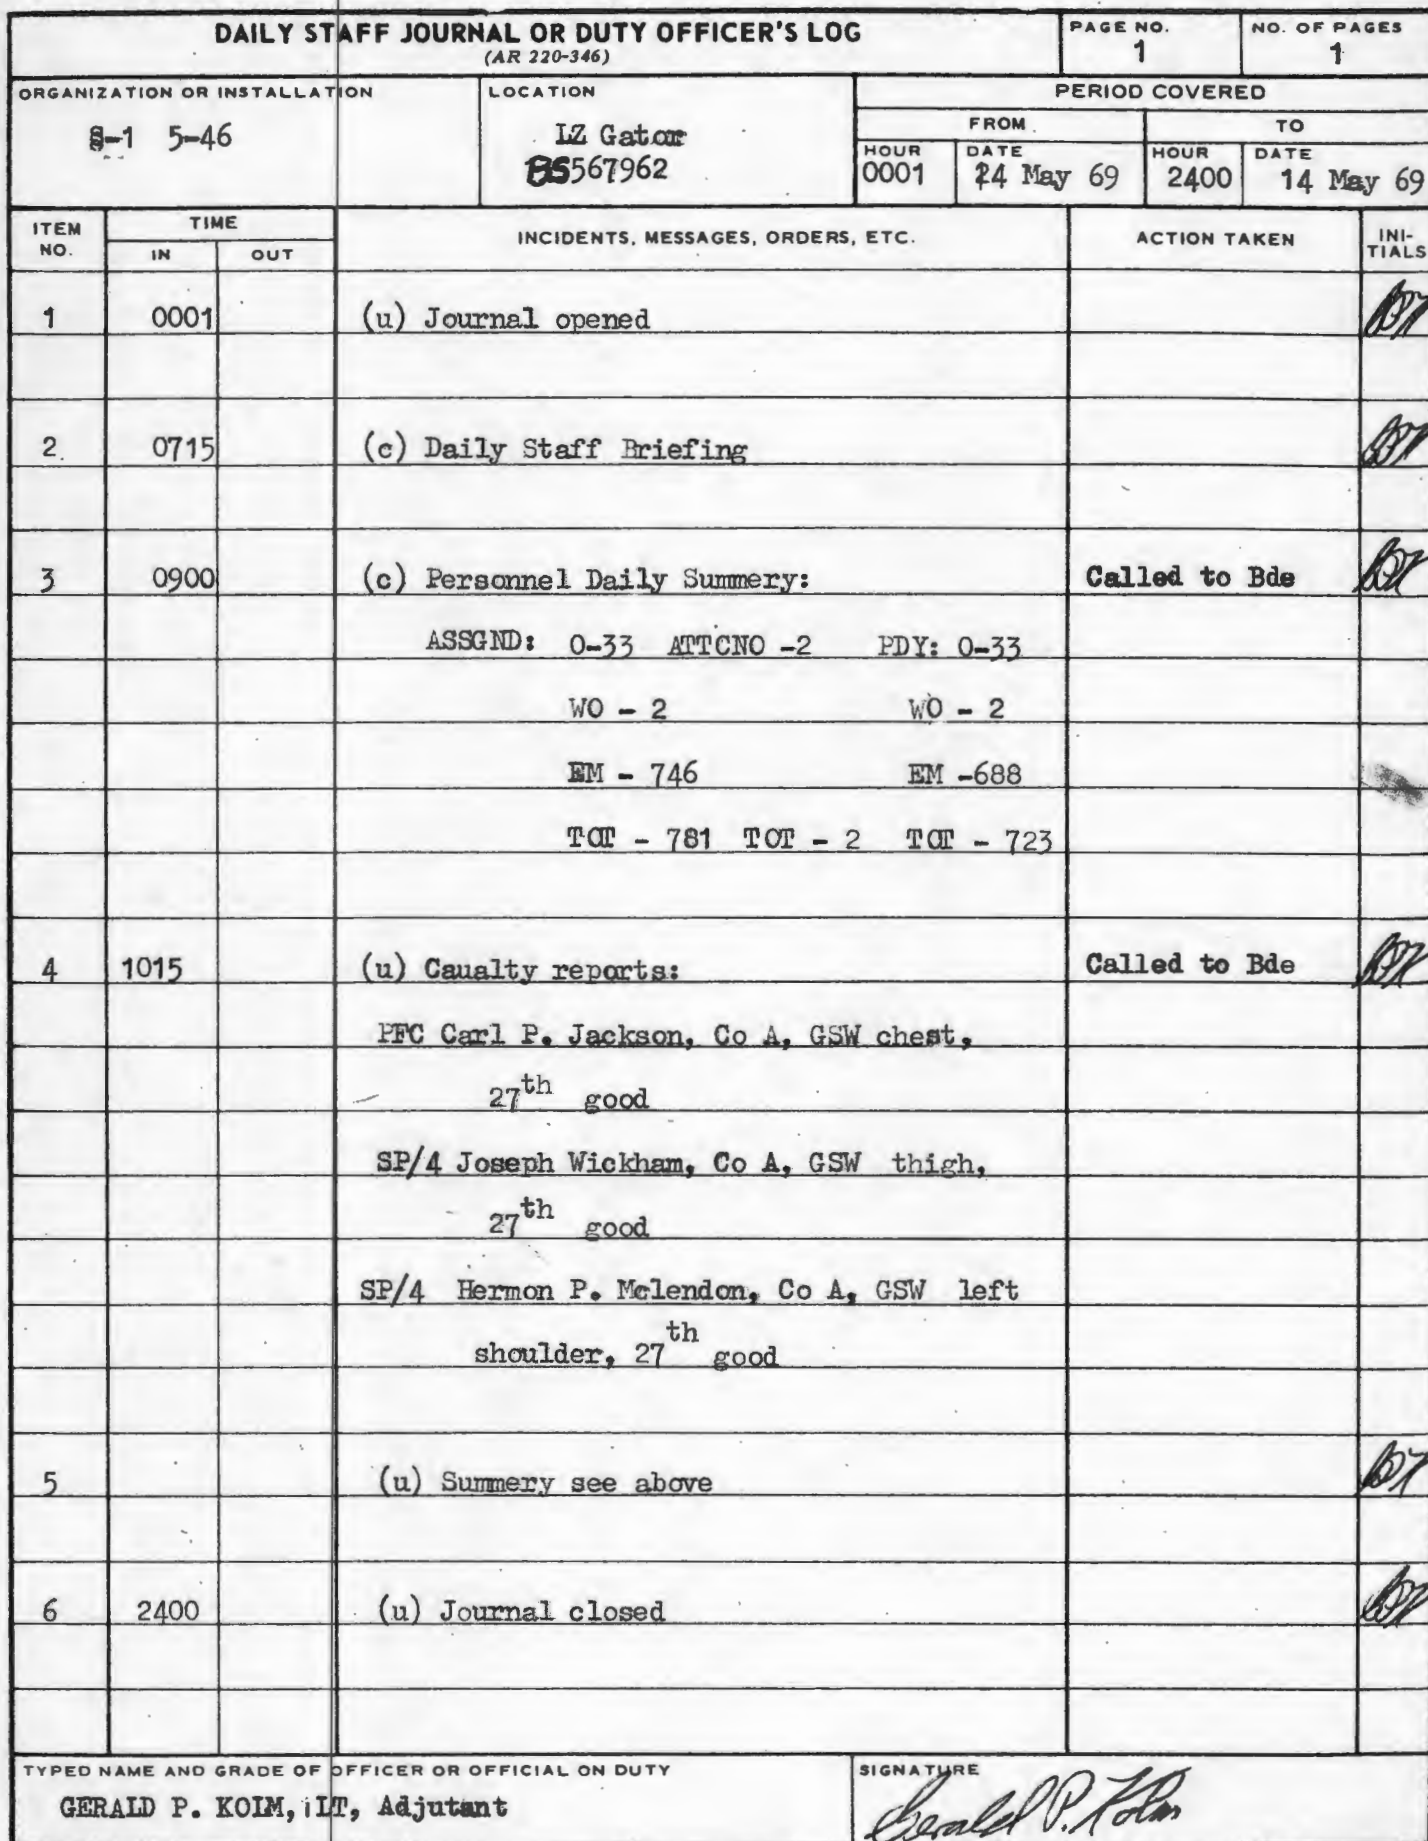 DAILY STAFF JOURNAL OR DUTY OFFICER'S LOG
(AR 220-346)
PAGE NO.
1
NO. OF PAGES
1
ORGANIZATION OR INSTALLATION
S-1 5-46
LOCATION
LZ Gator
BS567962
PERIOD COVERED
FROM
TO
HOUR
0001
DATE
14 May 69
HOUR
2400
DATE
14 May 69
ITEM NO.
TIME
IN
OUT
INCIDENTS, MESSAGES, ORDERS, ETC.
ACTION TAKEN
INI-
TIALS
1 0001 (u) Journal opened
2 0715 (c) Daily Staff Briefing
3 0900 (c) Personnel Daily Summery: Called to Bde
ASSGND: O-33 ATTCNO -2 PDY: O-33
WO - 2 WO - 2
EM - 746 EM -688
TOT - 781 TOT - 2 TOT - 723
4 1015 (u) Caualty reports: Called to Bde
PFC Carl P. Jackson, Co A, GSW chest,
27th good
SP/4 Joseph Wickham, Co A, GSW thigh,
27th good
SP/4 Hermon P. Mclendon, Co A, GSW left
shoulder, 27th good
5 (u) Summery see above
6 2400 (u) Journal closed
TYPED NAME AND GRADE OF OFFICER OR OFFICIAL ON DUTY
GERALD P. KOLM, 1LT, Adjutant
SIGNATURE
Gerald P. Kolm